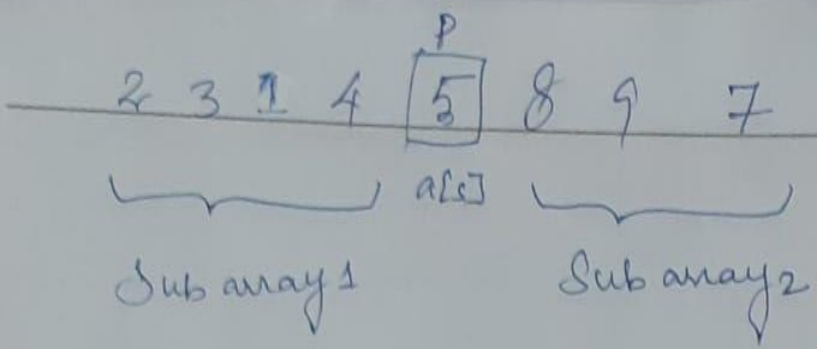 P
2 3 1 4 5 8 9 7
a[s]
Sub array 1 Sub array 2